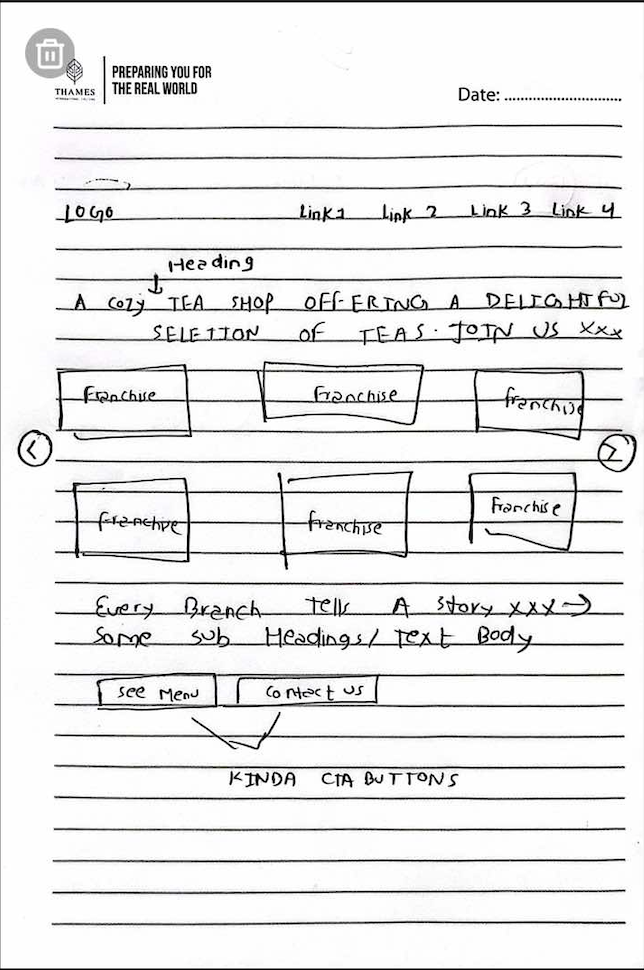 THAMES
PREPARING YOU FOR
THE REAL WORLD
Date: ..............................
LOGO Link1 Link 2 Link 3 Link 4
Heading
A cozy TEA SHOP OFFERING A DELIGHTFUL
SELETION OF TEAS. JOIN US XXX
Franchise Franchise franchise
< >
Franchise franchise Franchise
Every Branch Tells A story XXX →
Some sub Headings/ Text Body
see Menu Contact us
KINDA CTA BUTTONS